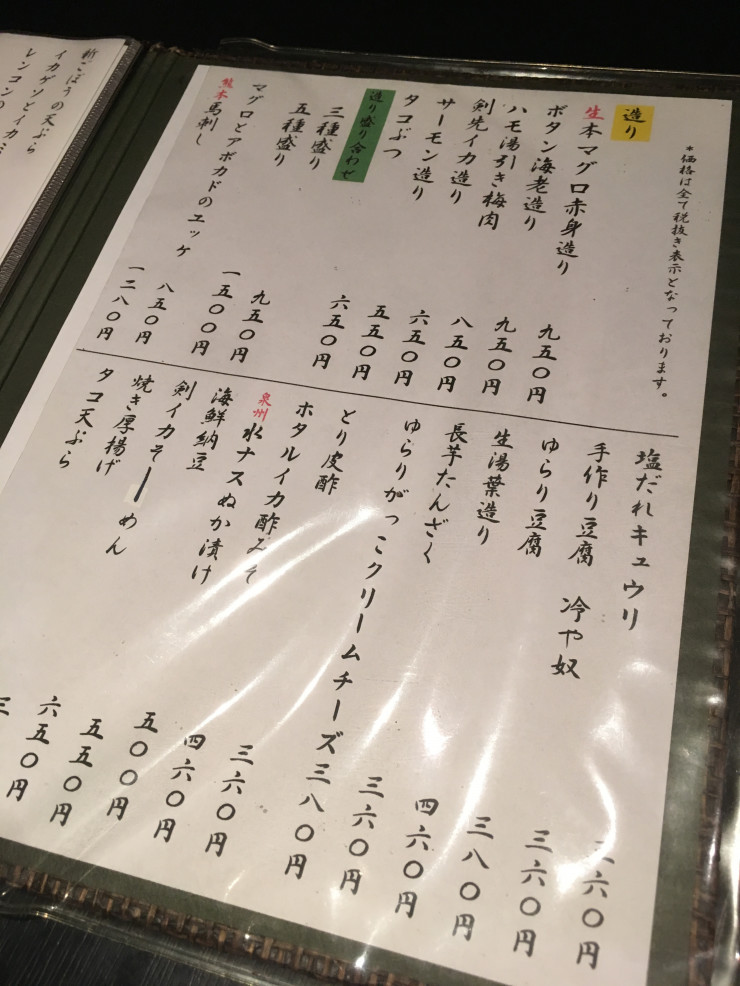 *価格は全て税抜き表示となっております。
造り
生本マグロ赤身造り 九五〇円
ボタン海老造り 九五〇円
ハモ湯引き梅肉 八五〇円
剣先イカ造り 六五〇円
サーモン造り 五五〇円
タコぶつ 六五〇円
造り盛り合わせ
三種盛り 九五〇円
五種盛り 一五〇〇円
マグロとアボカドのユッケ 八五〇円
熊本馬刺し 一二八〇円
塩だれキュウリ 六〇円
手作り豆腐 冷や奴 三六〇円
ゆらり豆腐 三八〇円
生湯葉造り 四六〇円
長芋たんざく 三六〇円
ゆらりがっこクリームチーズ 三八〇円
とり皮酢 三六〇円
ホタルイカ酢みそ 四六〇円
泉州水ナスぬか漬け 五〇〇円
海鮮納豆 五五〇円
剣イカそーめん 六五〇円
焼き厚揚げ 三
タコ天ぷら
新ごぼうの天ぷら
イカゲソとイカ
レンコンの